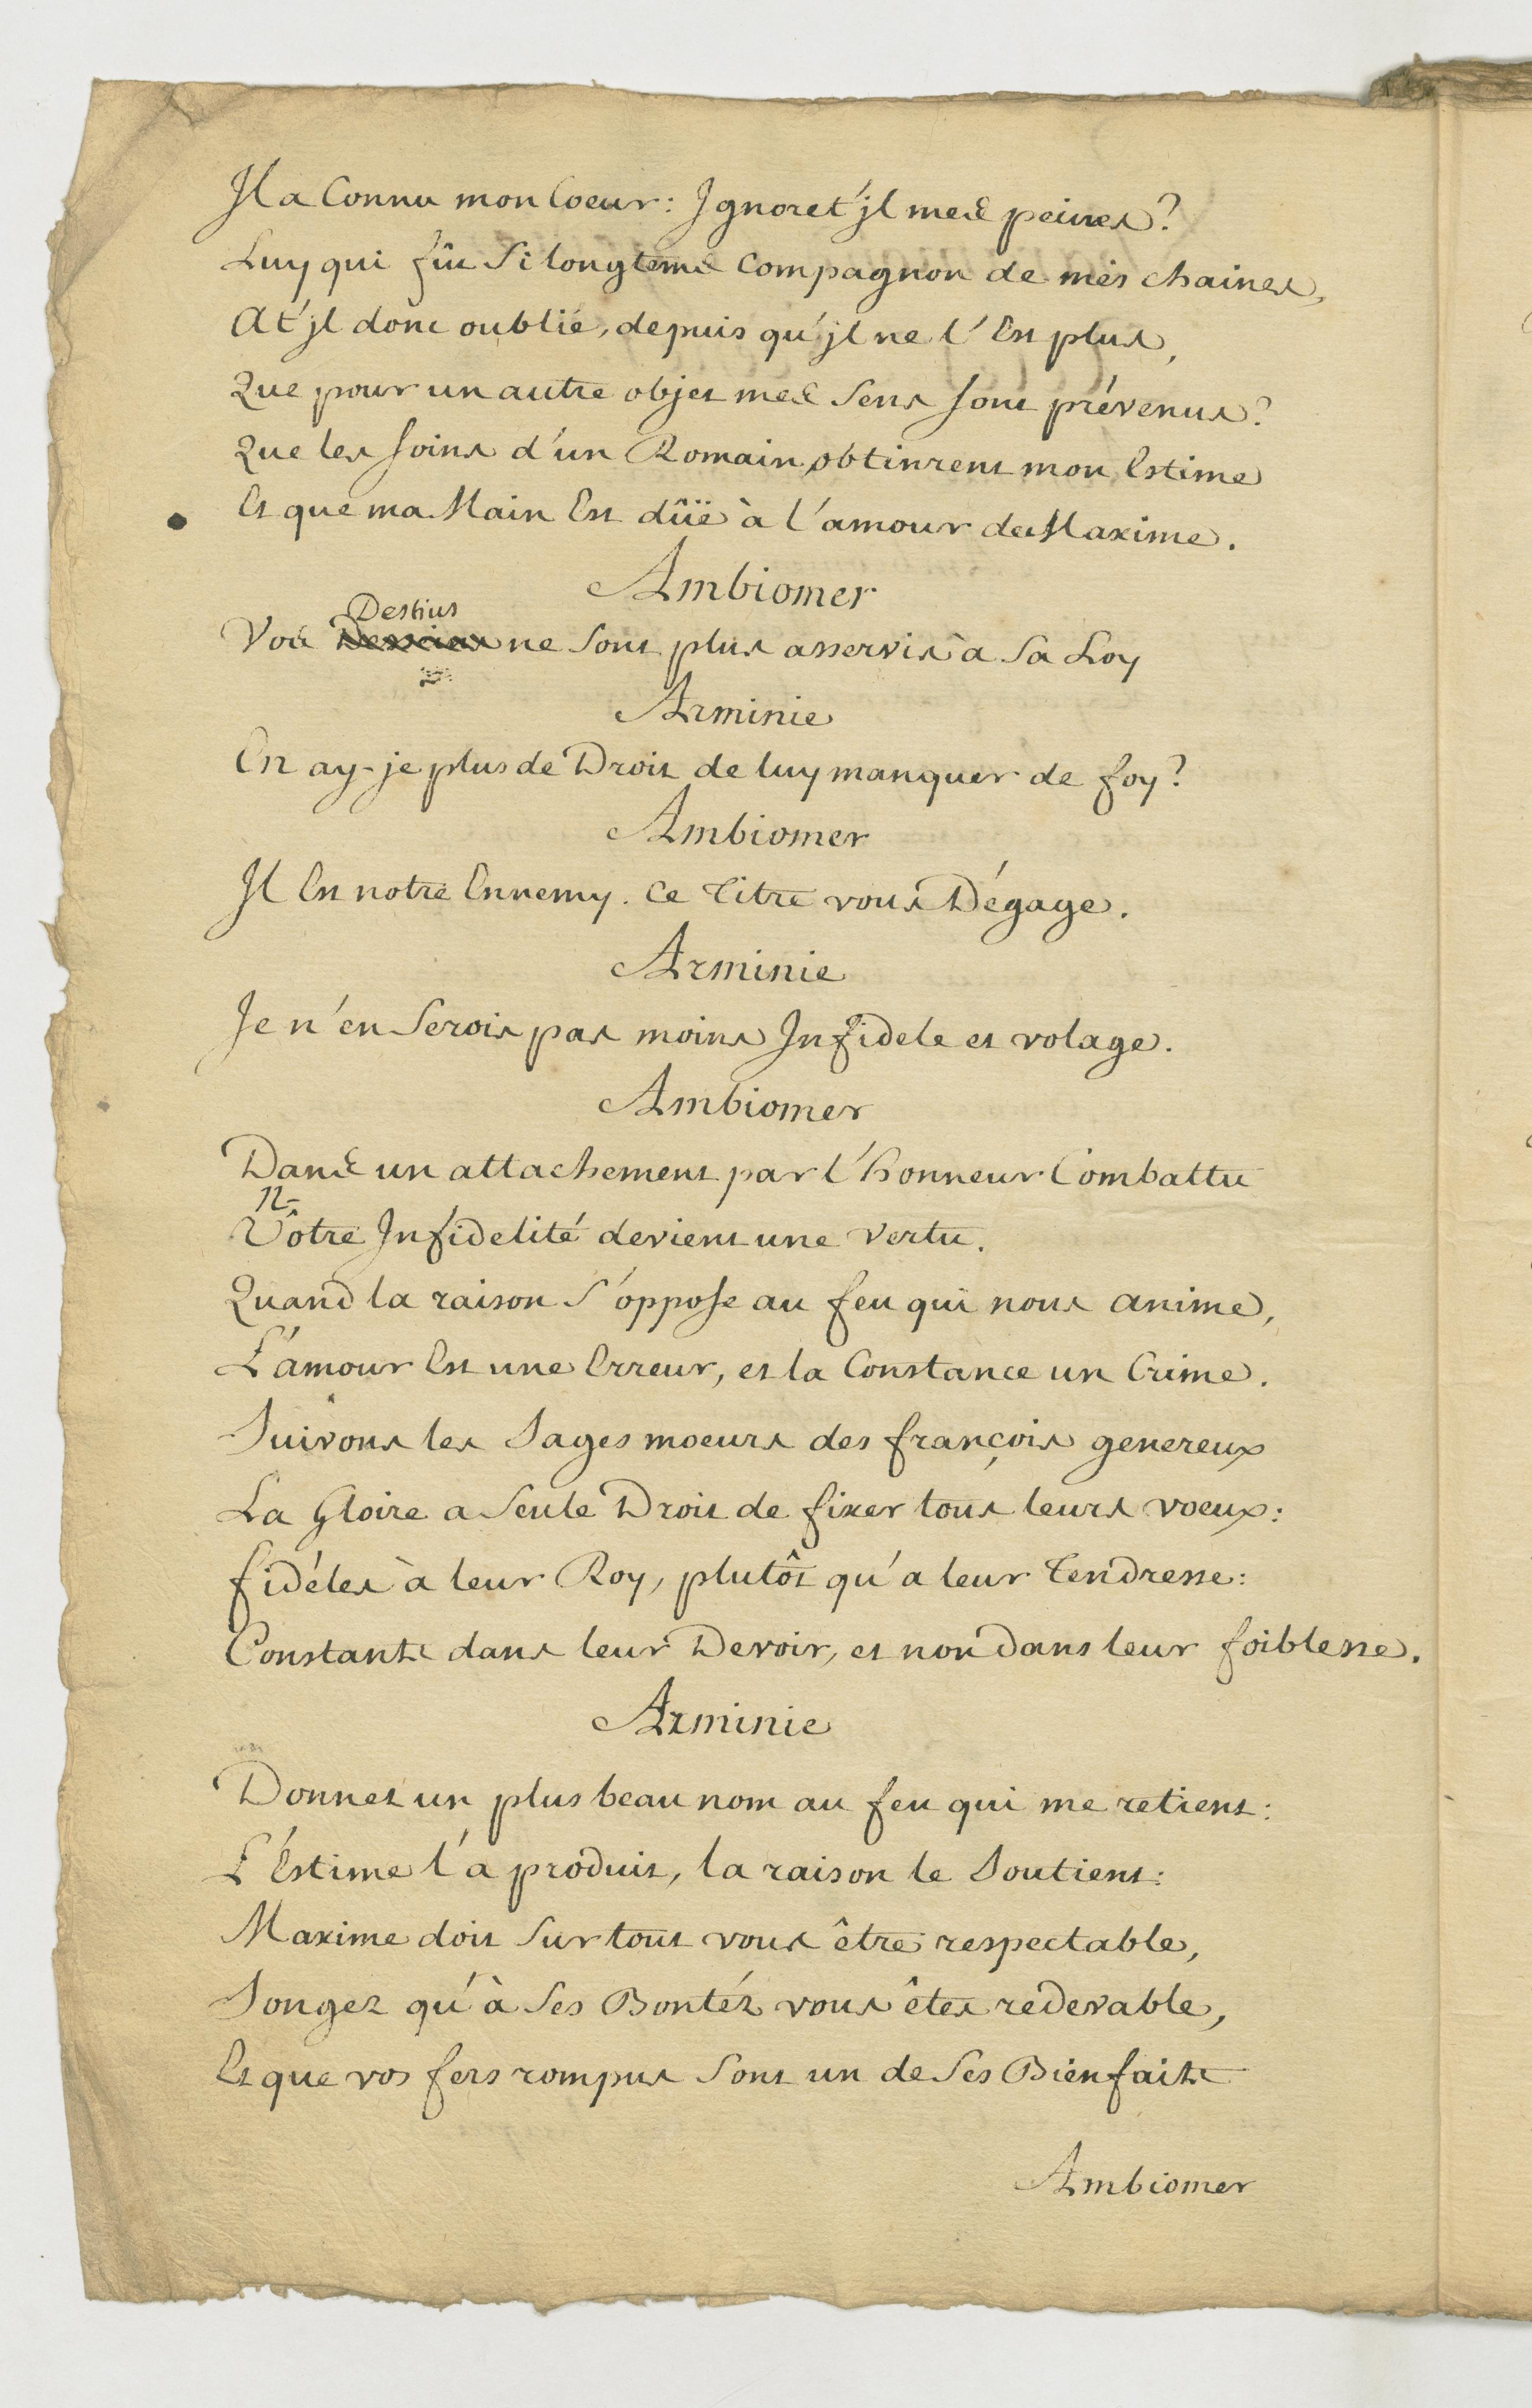 Il a Connu mon Coeur: Ignoret'jl mes peines?
Luy qui fût Si longtems Compagnon de mes chaines,
At'jl donc oublié, depuis qu'jl ne l'Est plus,
Que pour un autre objet mes Sens sont prévenus?
Que les soins d'un Romain obtinrent mon Estime
Et que ma Main Est dûë à l'amour de Maxime.
Ambiomer
Destins
Vos Desseins ne Sont plus asservis à Sa Loy
Arminie
En ay-je plus de Droit de luy manquer de foy?
Ambiomer
Il Est notre Ennemy. Ce Titre vous Dégage.
Arminie
Je n'en Serois pas moins Infidele et volage.
Ambiomer
Dans un attachement par l'honneur Combattu
n
Vôtre Infidelité devient une Vertu.
Quand la raison S'oppose au feu qui nous anime,
L'amour Est une Erreur, et la Constance un Crime.
Suivons les Sages moeurs des françois genereux
La Gloire a Seule Droit de fixer tous leurs voeux:
fidéles à leur Roy, plutôt qu'a leur Tendresse:
Constants dans leur Devoir, et non dans leur foiblesse.
Arminie
Donnez un plus beau nom au feu qui me retient:
L'Estime l'a produit, la raison le Soutient:
Maxime doit Sur tout vous être respectable,
Songez qu'à Ses Bontéz vous êtes redevable,
Et que vos fers rompus Sont un de Ses Bienfaits
Ambiomer